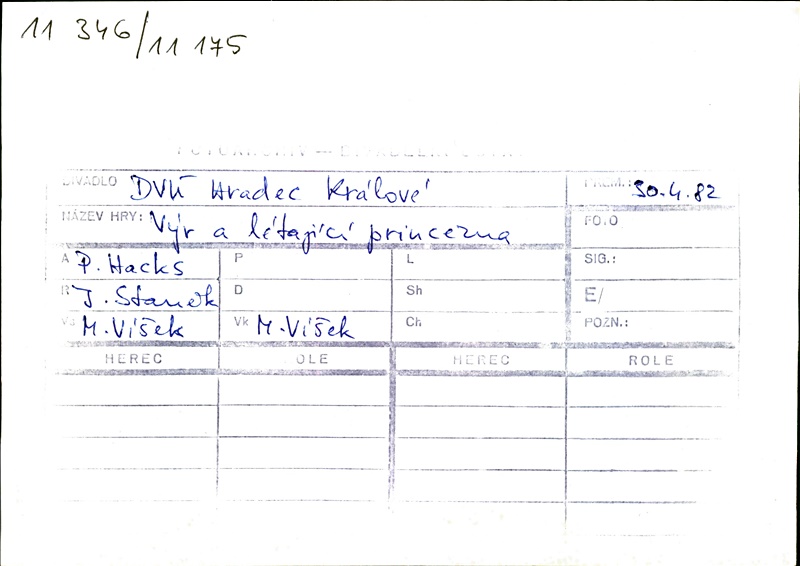 11 346/11 175
DIVADLO DVÚ Hradec Králové PREM.: 30.4.82
NÁZEV HRY: Výr a létající princezna FOTO
A P. Hacks P L SIG.:
R J. Stanek D Sh E/
Vs M. Víšek Vk M. Víšek Ch POZN.:
HEREC ROLE HEREC ROLE